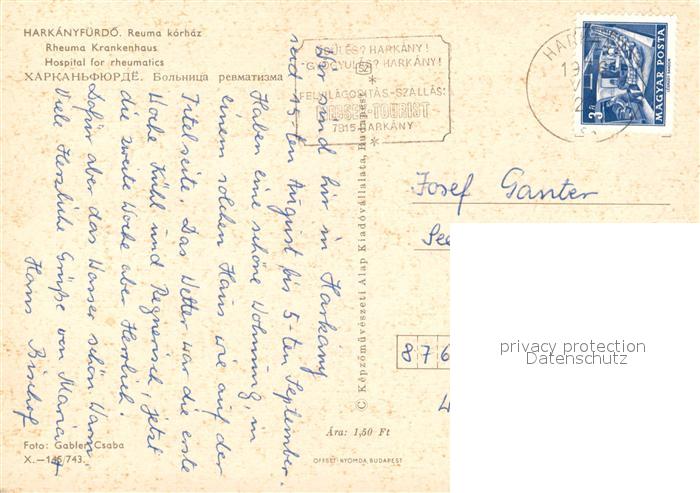 HARKÁNYFÜRDŐ. Reuma kórház
Rheuma Krankenhaus
Hospital for rheumatics
ХАРКАНЬФЮРДЁ. Больница ревматизма
ÜDÜLÉS? HARKÁNY!
GYÓGYULÉS? HARKÁNY!
FELVILÁGOSÍTÁS-SZÁLLÁS:
MECSEK-TOURIST
7815 HARKÁNY
HARKÁNY
19
3 Ft
MAGYAR POSTA
Wir sind hir in Harkány
seid 15-ten August bis 5-ten September.
Haben eine schöne Wohnung, in
einem solchen Haus wie auf der
Titelseite. Das Wetter war die erste
Woche Kühl und Regnerisch, jetzt
die zweite Woche aber Herrlich.
Dafür aber das Wasser schön Warm
Viele Herzliche Grüße von Maria u
Hans Bischof
Josef Ganter
See
876
© Képzőművészeti Alap Kiadóvállalata, Budapest
Ára: 1,50 Ft
OFFSET-NYOMDA, BUDAPEST
Foto: Gabler Csaba
X.—145/743.
privacy protection
Datenschutz